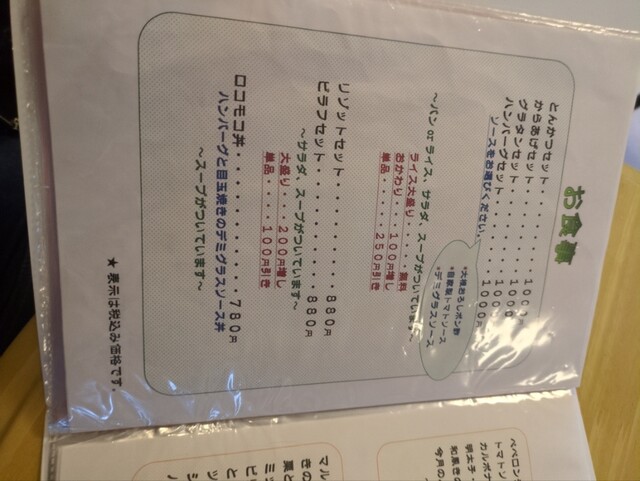 お食事
とんかつセット・・・・・・・・1000円
からあげセット・・・・・・・・1000円
グラタンセット・・・・・・・・1000円
ハンバーグセット・・・・・・・1000円
ソースをお選びください。
•大根おろしポン酢
•自家製トマトソース
•デミグラスソース
～パン or ライス、サラダ、スープがついています～
ライス大盛り・・・・無料
おかわり・・・100円増し
単品・・・・・250円引き
リゾットセット・・・・・・・・・880円
ピラフセット・・・・・・・・・・880円
～サラダ、スープがついています～
大盛り・・・200円増し
単品・・・・100円引き
ロコモコ丼・・・・・・・・・・・780円
ハンバーグと目玉焼きのデミグラスソース丼
～スープがついています～
★表示は税込み価格です。
ペペロン
トマトソ
カルボナ
明太子・
和風き
今月の
マル
きの
栗と
ミッ
ピ
と
ッ
シ